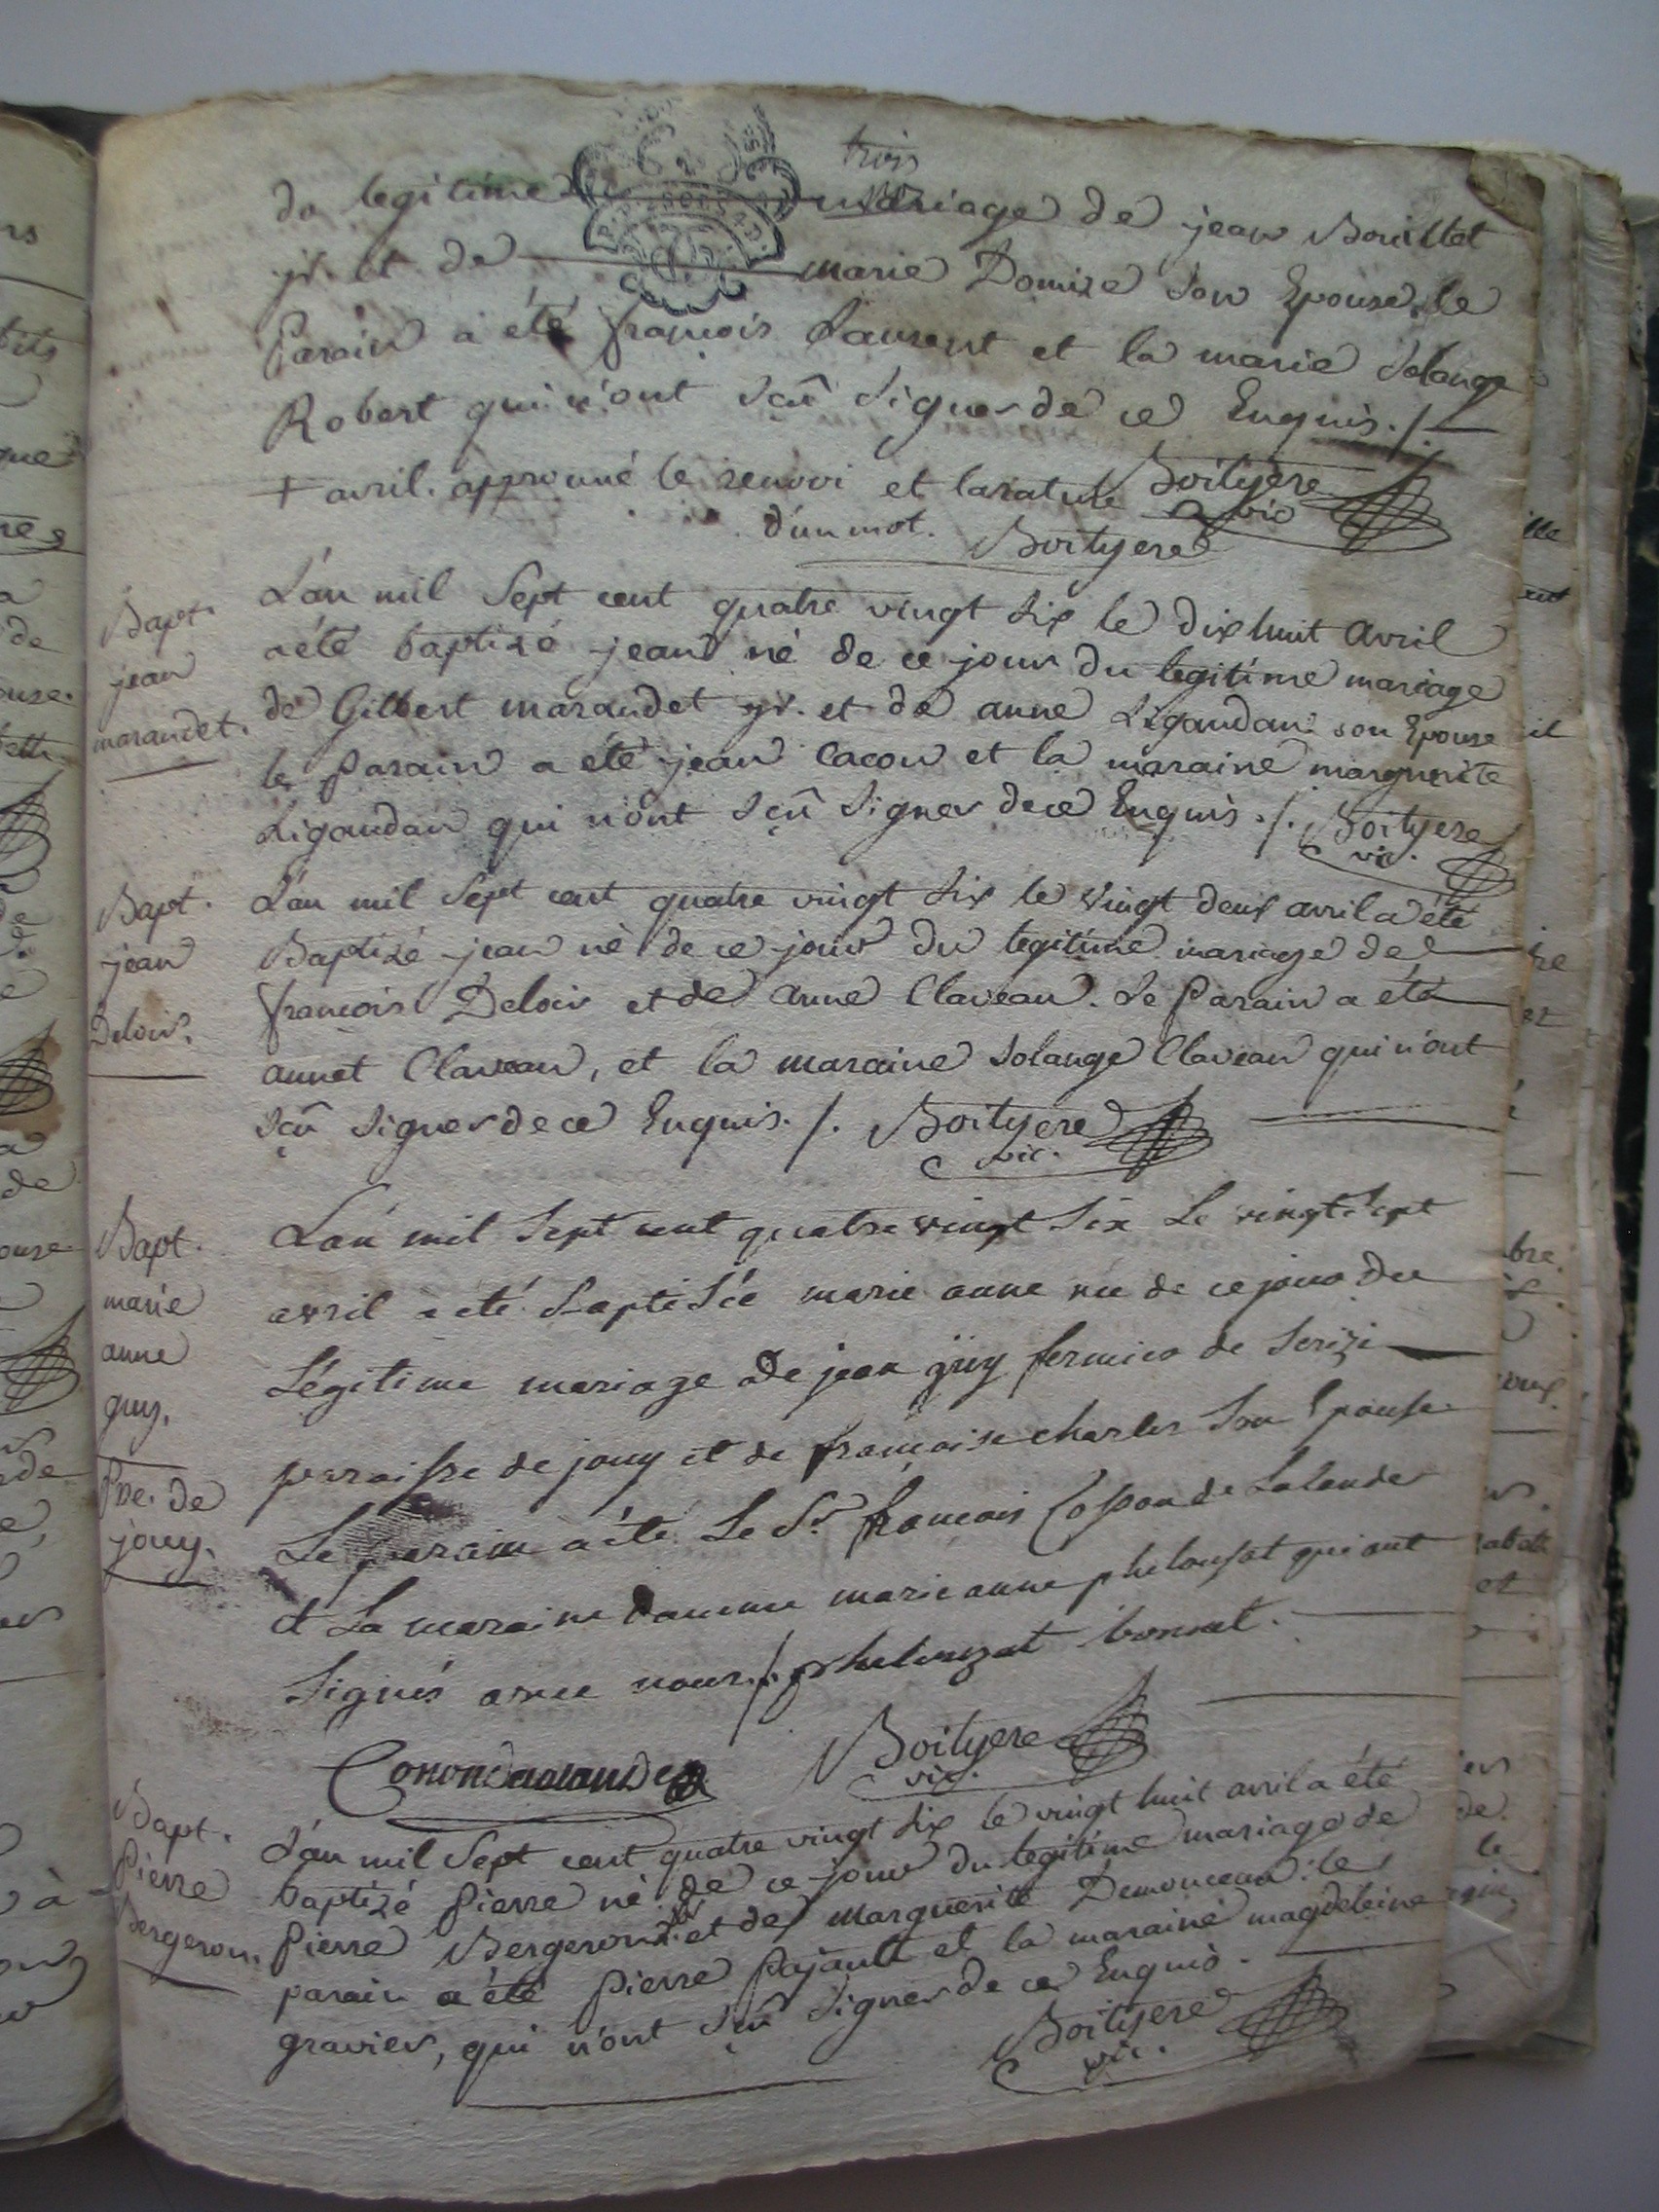 trois
du legitime mariage de jean Bouillet
jr. et de marie Domize son Epouse. le
Parain a été francois Laurent et la marie Solange
Robert qui n'ont sçu signer de ce Enquis ./.
+ avril. approuvé le renvoi et larature Boityere
vic
d'un mot. Boityere
L'an mil Sept cent quatre vingt six le dix huit avril
a été baptizé jean né de ce jour du legitime mariage
de Gilbert maraudet jr. et de anne Ligaudan son Epouse
le Parain a été jean Cacou et la maraine marguerite
Ligaudan qui n'ont sçu signer de ce Enquis ./. Boityere
vic.
Bapt.
jean
maraudet.
L'an mil Sept cent quatre vingt six le vingt deux avril a été
Baptizé jean né de ce jour du legitime mariage de
francois Delois et de anne Claveau. Le Parain a été
annet Claveau, et la maraine Solange Claveau qui n'ont
sçu signer de ce Enquis ./. Boityere
vic.
Bapt.
jean
Delois.
L'an mil Sept cent quatre vingt six Le vingt Sept
avril a été Baptisée marie anne née de ce jour du
Légitime mariage de jean güy fermier de Serizi
paroisse de jouy et de françoise charles Son Epouse
Le parain a été Le Sr. francois Conon de Lalande
et La maraine damme marie anne phelouzat qui ont
Signés avec nous ./. phelouzat bonnet.
Conon de lalande Boityere
vic.
Bapt.
marie
anne
guy.
Psse. de
jouy.
L'an mil Sept cent quatre vingt six le vingt huit avril a été
baptizé Pierre né de ce jour du legitime mariage de
Pierre Bergeron jr. et de marguerite Demonceau: le
parain a été Pierre Pajault et la maraine magdeleine
gravier, qui n'ont sçu signer de ce Enquis.
Boityere
vic.
Bapt.
Pierre
Bergeron.